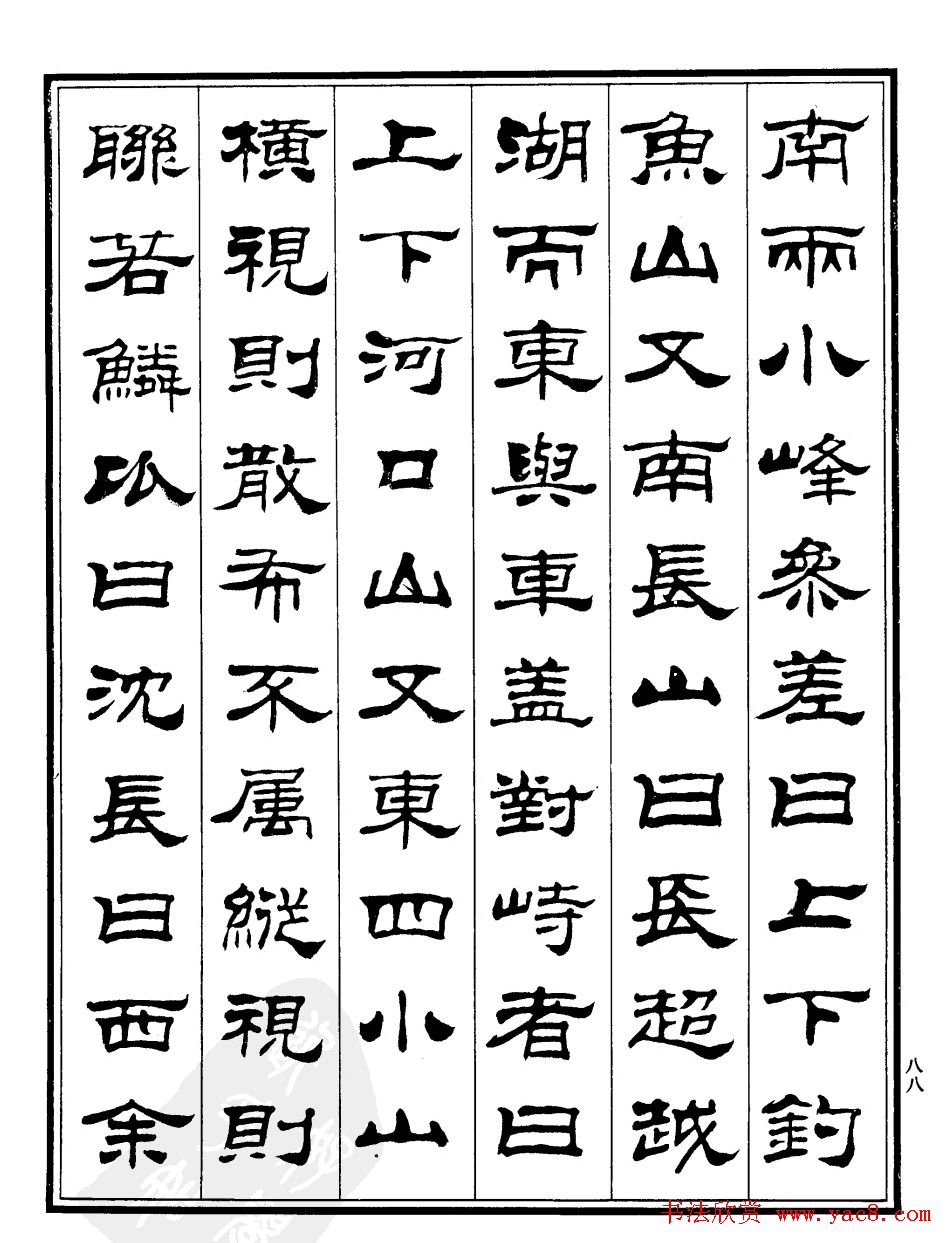 南兩小峰參差曰上下釣
魚山又南長山曰長超越
湖而東與車盖對峙者曰
上下河口山又東四小山
橫視則散布不属縱視則
聯若鱗以曰沈長曰西余
八八
书法欣赏 www.yac8.com